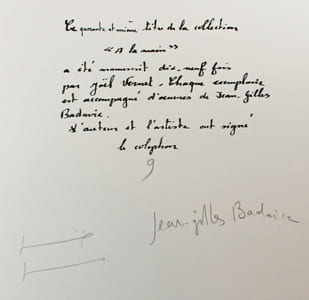 Ce quarante et unième titre de la collection
"A la main"
a été manuscrit dix-neuf fois
par Joël Vernet. Chaque exemplaire
est accompagné d'œuvres de Jean-Gilles
Badaire.
L'auteur et l'artiste ont signé
le colophon
9
Jean-Gilles Badaire